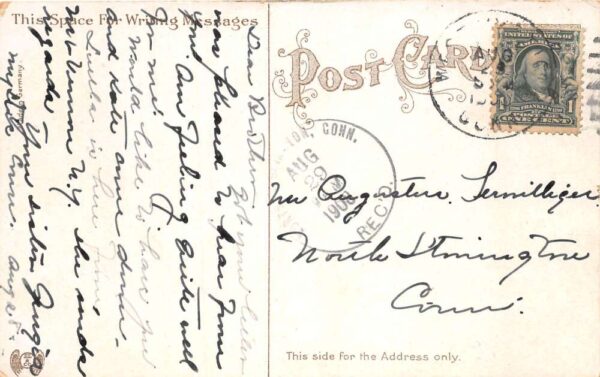 This Space For Writing Messages
Dear Brother
got your letter
was pleased to hear from
you. Am feeling quite well
for me.
Would like to have you
and Kate come down.
Luella is here from
Mt Vernon N.Y. She sends
regards.
Your sister
Mystic Conn. Aug 28.
POST CARD
AUG
CONN.
UNITED STATES OF AMERICA
FRANKLIN
1 1
POSTAGE
ONE CENT
CONN.
AUG
29
REC'D.
Mr Augustus Terwilliger
North Stonington
Conn.
This side for the Address only.